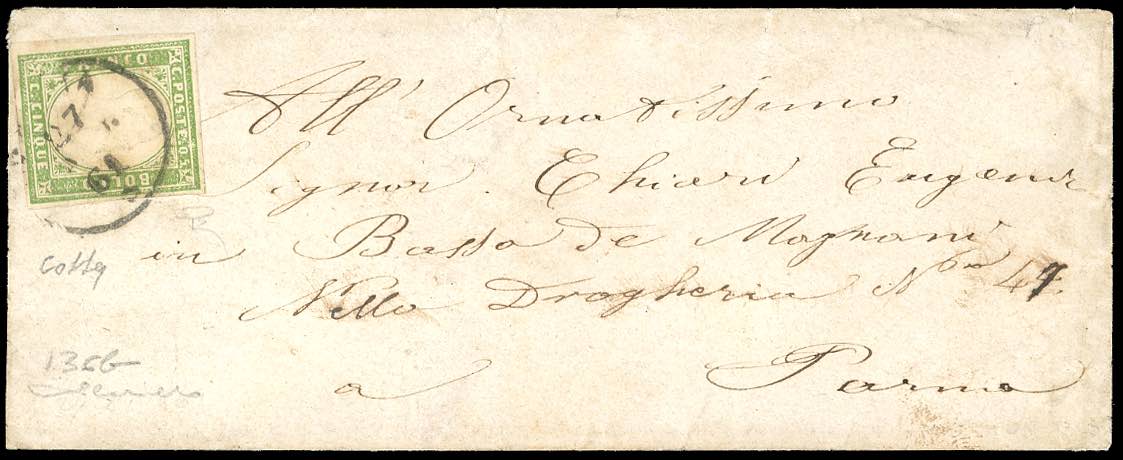 C. POSTE 0,5
C. CINQUE
BOLLO
27
61
All' Ornatissimo
Signor Chiari Eugenio
in Basso de Magnani
Nello Drogheria N.ro 41
a Parma